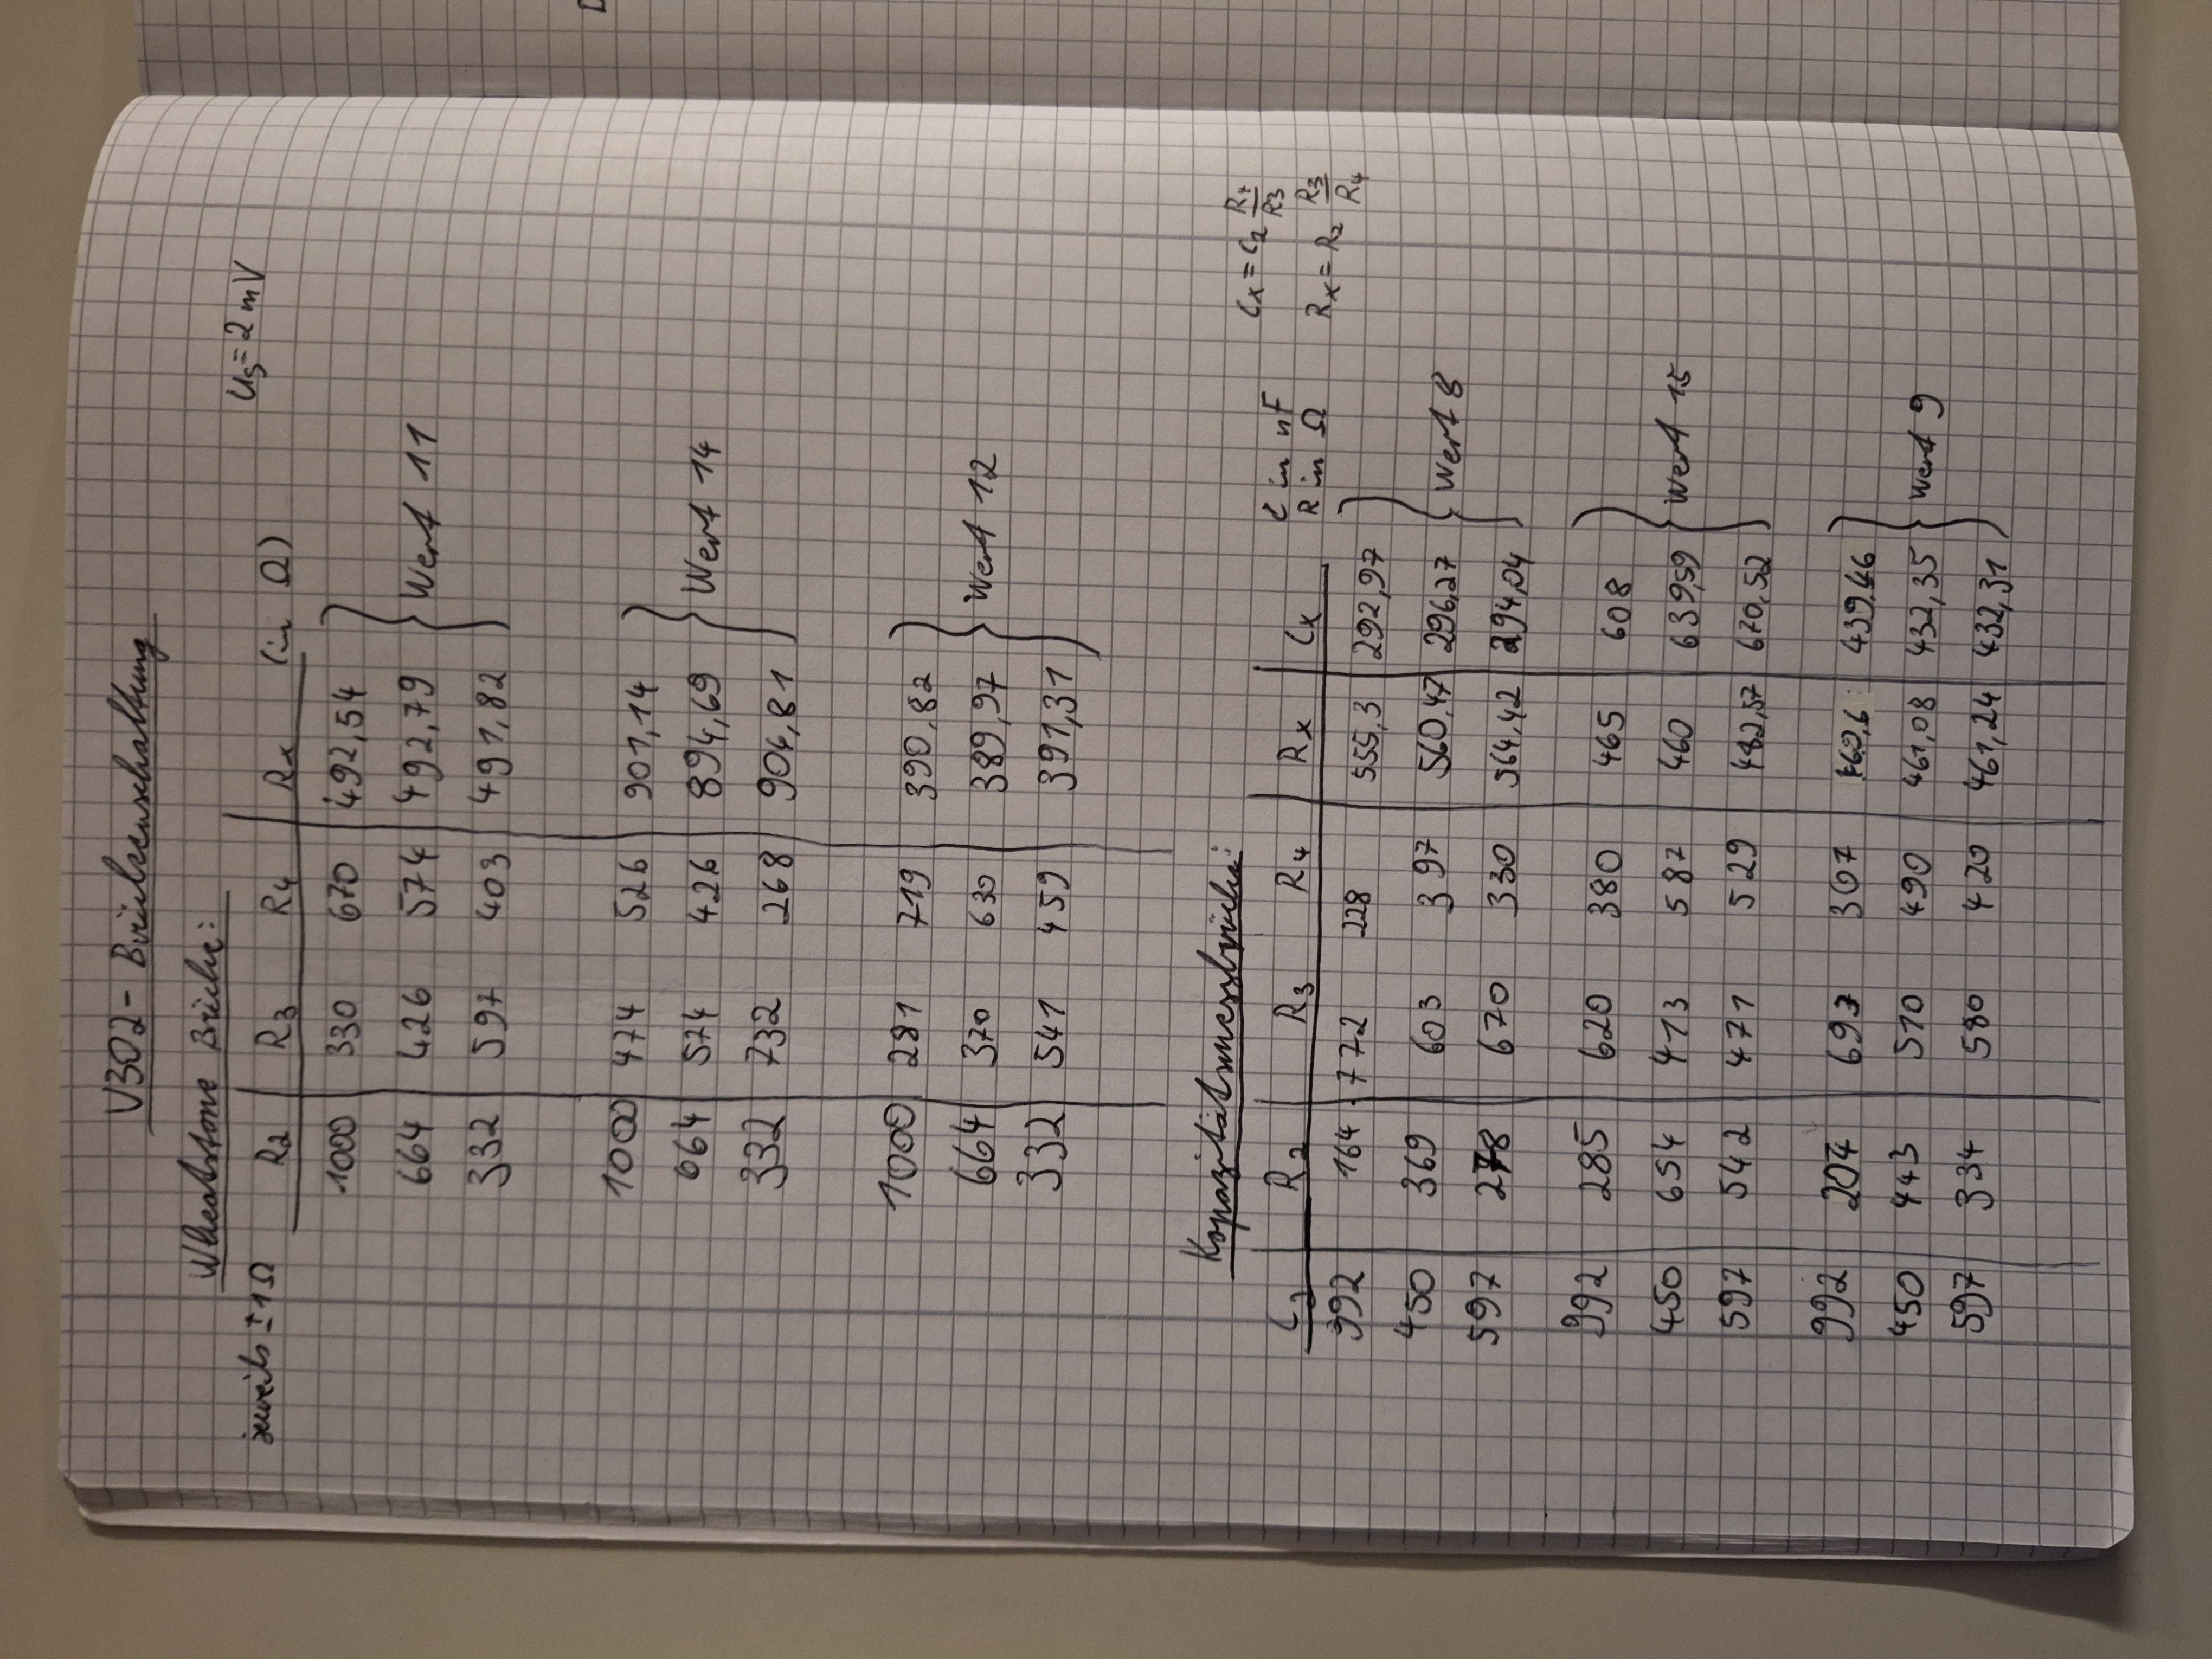 V302 - Brückenschaltung
Wheatstone Brücke:
jeweils ±1Ω
U_S = 2 mV
R2 R3 R4 Rx (in Ω)
1000 330 670 492,54
664 426 574 492,79 Wert 11
332 597 403 491,82
1000 474 526 901,14
664 574 426 894,69 Wert 14
332 732 268 906,81
1000 281 719 390,82
664 370 630 389,97 Wert 12
332 541 459 391,31
Kapazitätsmessbrücke:
C2 R2 R3 R4 Rx Cx C in nF Cx = C2 R4/R3
R in Ω Rx = R2 R3/R4
992 164 772 228 555,3 292,97
450 369 603 397 560,47 296,27 Wert 8
597 278 670 330 564,42 294,04
992 285 620 380 465 608
450 654 413 587 460 639,59 Wert 15
597 542 471 529 482,57 670,52
992 204 693 307 460,6 439,46
450 443 510 490 461,08 432,35 Wert 9
597 334 580 420 461,24 432,31